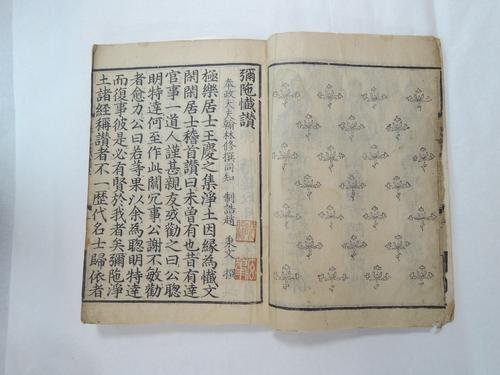 彌陁懺讃
奉政大夫翰林修撰同知 制誥趙 秉文 撰
極樂居士王慶之集淨土因縁為懺文
閑閑居士稽首讃曰未曽有也昔有達
官事一道人謹甚親友或勸之曰公聡
明特達何至作此閑冗事公謝不敏勸
者愈力公曰若等果以余為聡明特達
而復事彼是必有賢於我者矣彌陁淨
土諸經稱讃者不一歴代名士歸依者